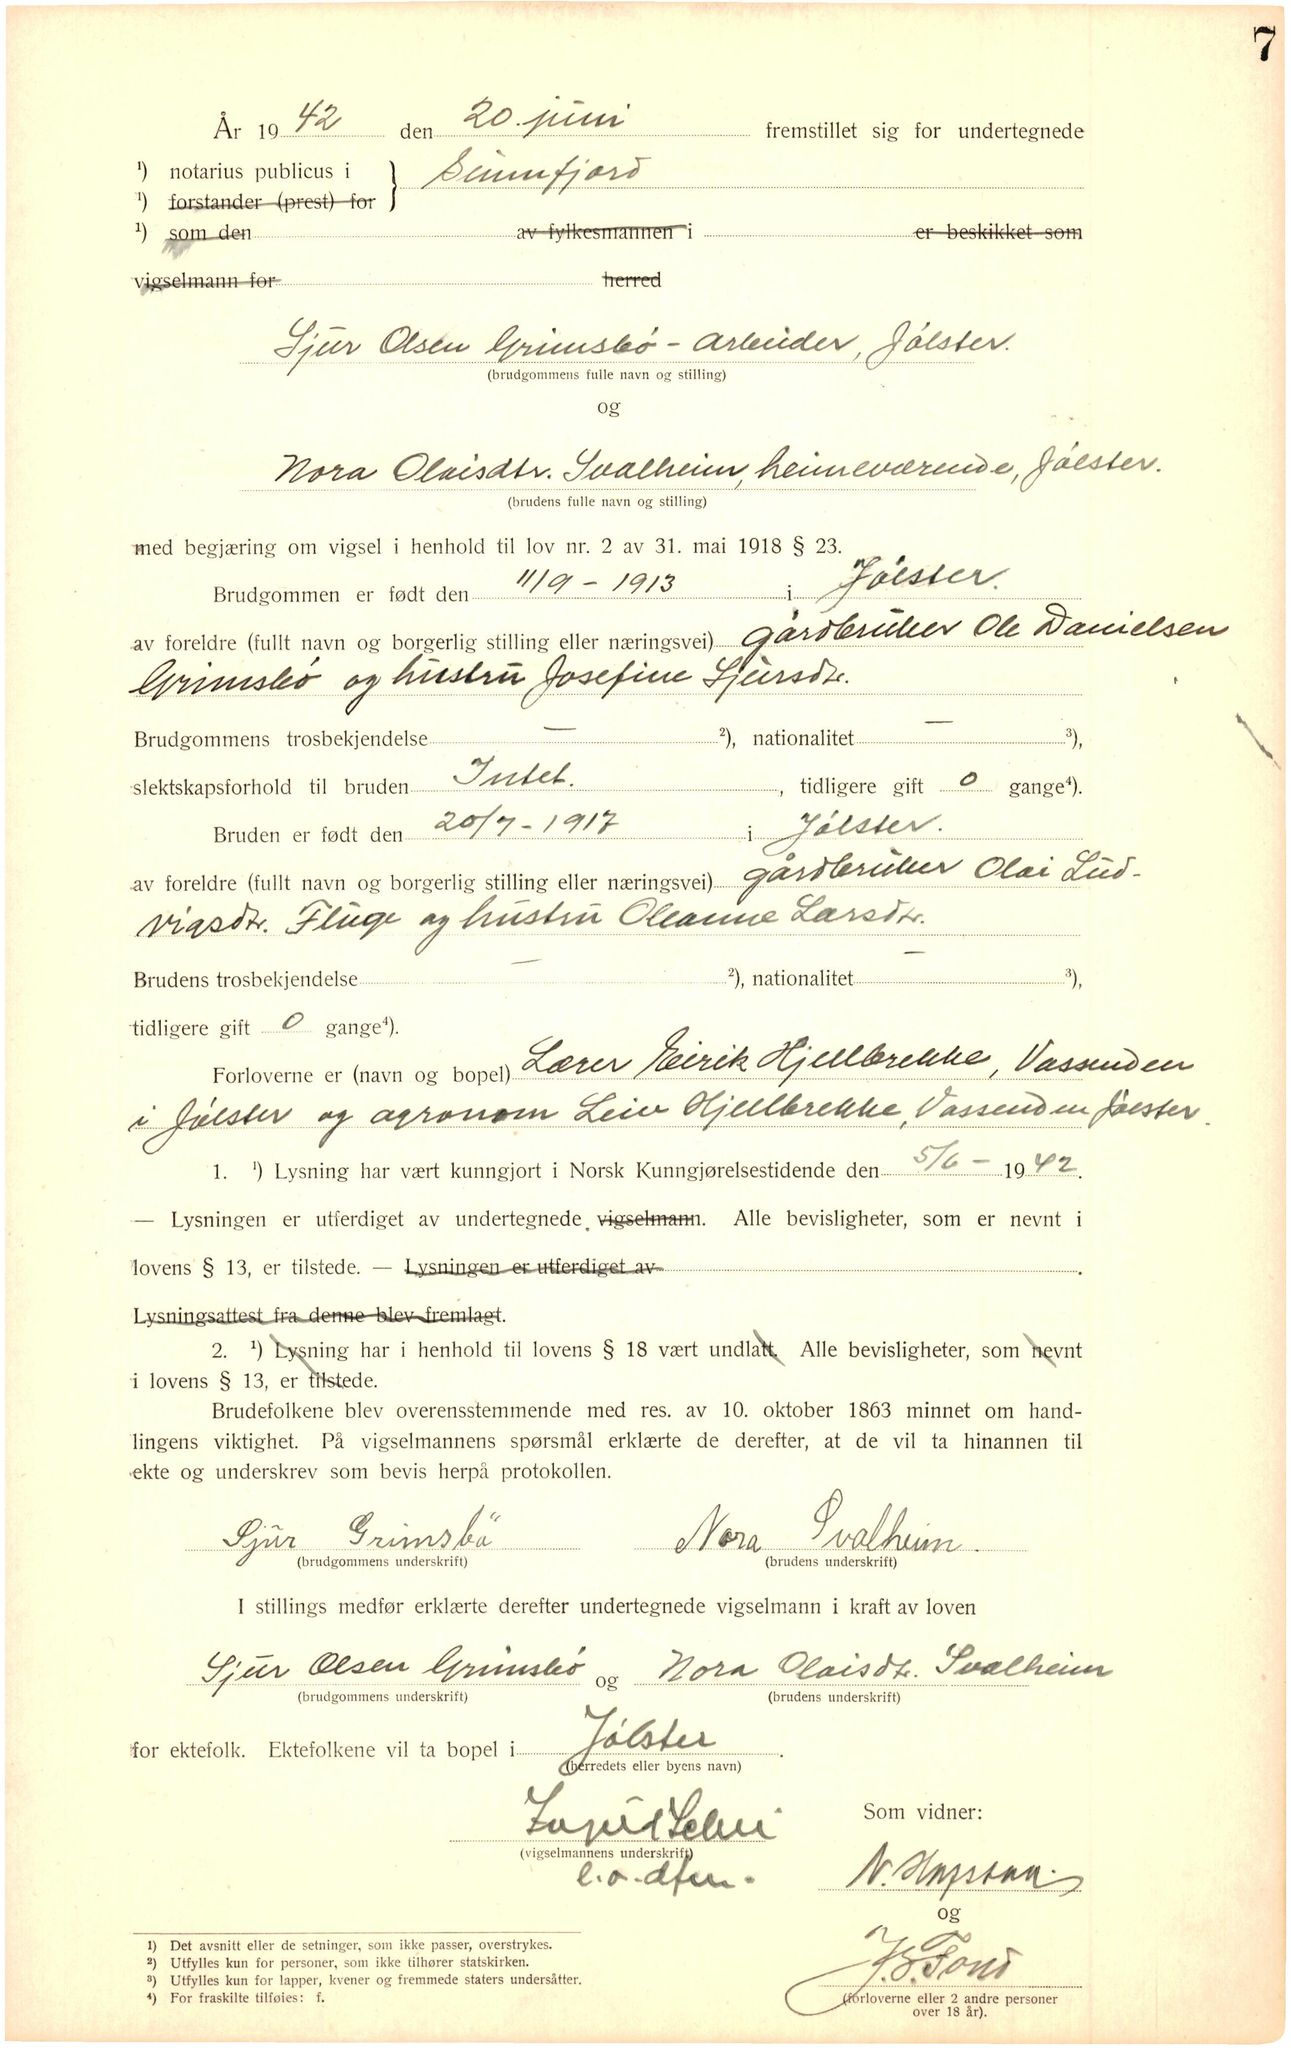 7
År 1942 den 20. juni fremstillet sig for undertegnede
¹) notarius publicus i } Sunnfjord
¹) forstander (prest) for
¹) som den av fylkesmannen i er beskikket som
vigselmann for herred
Sjur Olsen Grimsbö - arbeider, Jölster.
(brudgommens fulle navn og stilling)
og
Nora Olaisdtr. Svalheim, heimeværende, Jölster.
(brudens fulle navn og stilling)
med begjæring om vigsel i henhold til lov nr. 2 av 31. mai 1918 § 23.
Brudgommen er født den 11/9 - 1913 i Jölster.
av foreldre (fullt navn og borgerlig stilling eller næringsvei) gårdbruker Ole Danielsen
Grimsbö og hustru Josefine Sjursdtr.
Brudgommens trosbekjendelse — ²), nationalitet — ³),
slektskapsforhold til bruden Intet. , tidligere gift 0 gange⁴).
Bruden er født den 20/7 - 1917 i Jölster.
av foreldre (fullt navn og borgerlig stilling eller næringsvei) gårdbruker Olai Lud-
vigsdtr. Fluge og hustru Oleanne Larsdtr.
Brudens trosbekjendelse — ²), nationalitet — ³),
tidligere gift 0 gange⁴).
Forloverne er (navn og bopel) Lærer Eirik Hjellbrekke, Vassenden
i Jölster og agronom Leiv Hjellbrekke, Vassenden Jölster.
1. ¹) Lysning har vært kunngjort i Norsk Kunngjørelsestidende den 5/6 - 1942.
— Lysningen er utferdiget av undertegnede vigselmann. Alle bevisligheter, som er nevnt i
lovens § 13, er tilstede. — Lysningen er utferdiget av .
Lysningsattest fra denne blev fremlagt.
2. ¹) Lysning har i henhold til lovens § 18 vært undlatt. Alle bevisligheter, som nevnt
i lovens § 13, er tilstede.
Brudefolkene blev overensstemmende med res. av 10. oktober 1863 minnet om hand-
lingens viktighet. På vigselmannens spørsmål erklærte de derefter, at de vil ta hinannen til
ekte og underskrev som bevis herpå protokollen.
Sjur Grimsbö Nora Svalheim.
(brudgommens underskrift) (brudens underskrift)
I stillings medfør erklærte derefter undertegnede vigselmann i kraft av loven
Sjur Olsen Grimsbö og Nora Olaisdtr. Svalheim
(brudgommens underskrift) (brudens underskrift)
for ektefolk. Ektefolkene vil ta bopel i Jölster .
(herredets eller byens navn)
Som vidner:
(vigselmannens underskrift)
N.
og
(forloverne eller 2 andre personer
over 18 år).
1) Det avsnitt eller de setninger, som ikke passer, overstrykes.
2) Utfylles kun for personer, som ikke tilhører statskirken.
3) Utfylles kun for lapper, kvener og fremmede staters undersåtter.
4) For fraskilte tilføies: f.